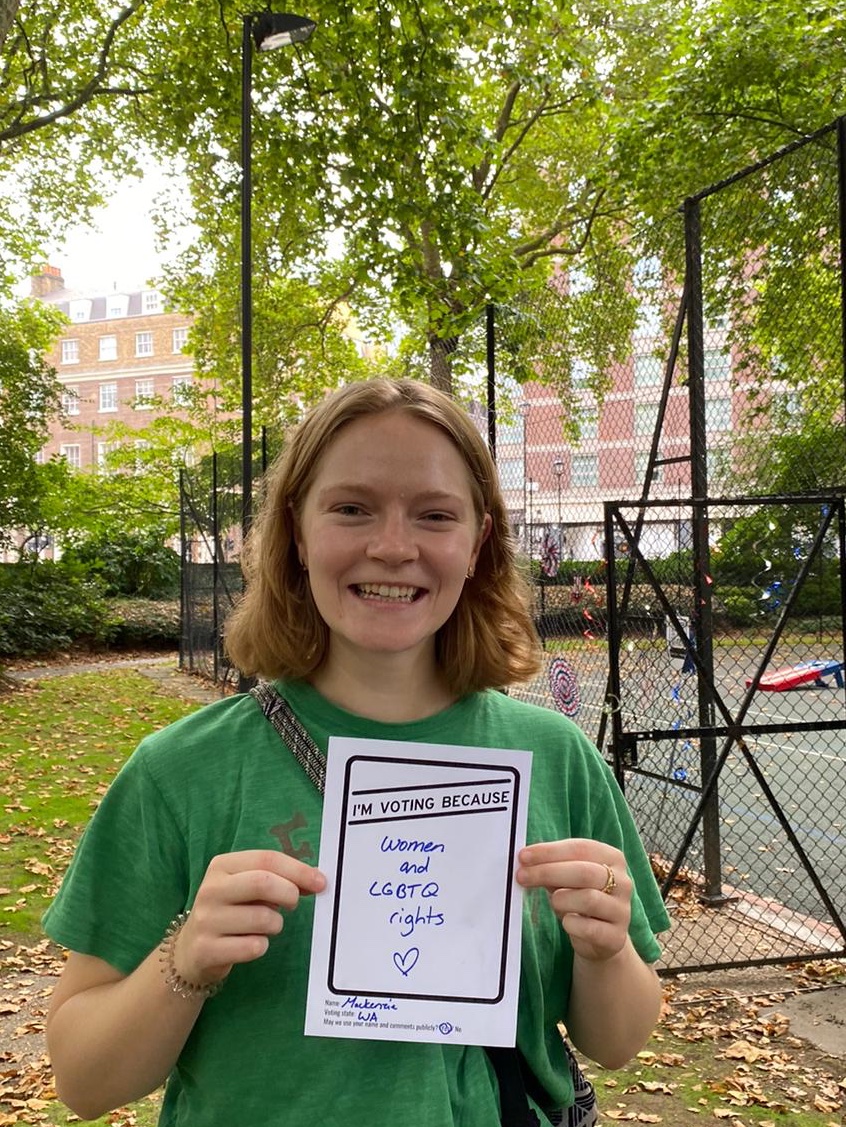 I'M VOTING BECAUSE
Women
and
LGBTQ
rights
Name: Mackenzie
Voting state: WA
May we use your name and comments publicly? Yes No